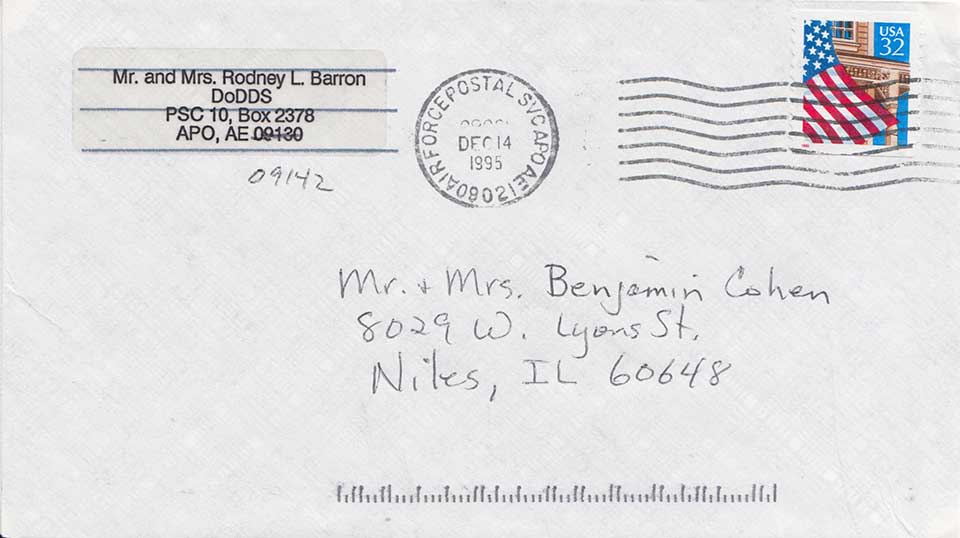 Mr. and Mrs. Rodney L. Barron
DoDDS
PSC 10, Box 2378
APO, AE 09130
09142
AIR FORCE POSTAL SVC APO AE 12080
DEC 14
1995
USA
32
Mr. + Mrs. Benjamin Cohen
8029 W. Lyons St.
Niles, IL 60648